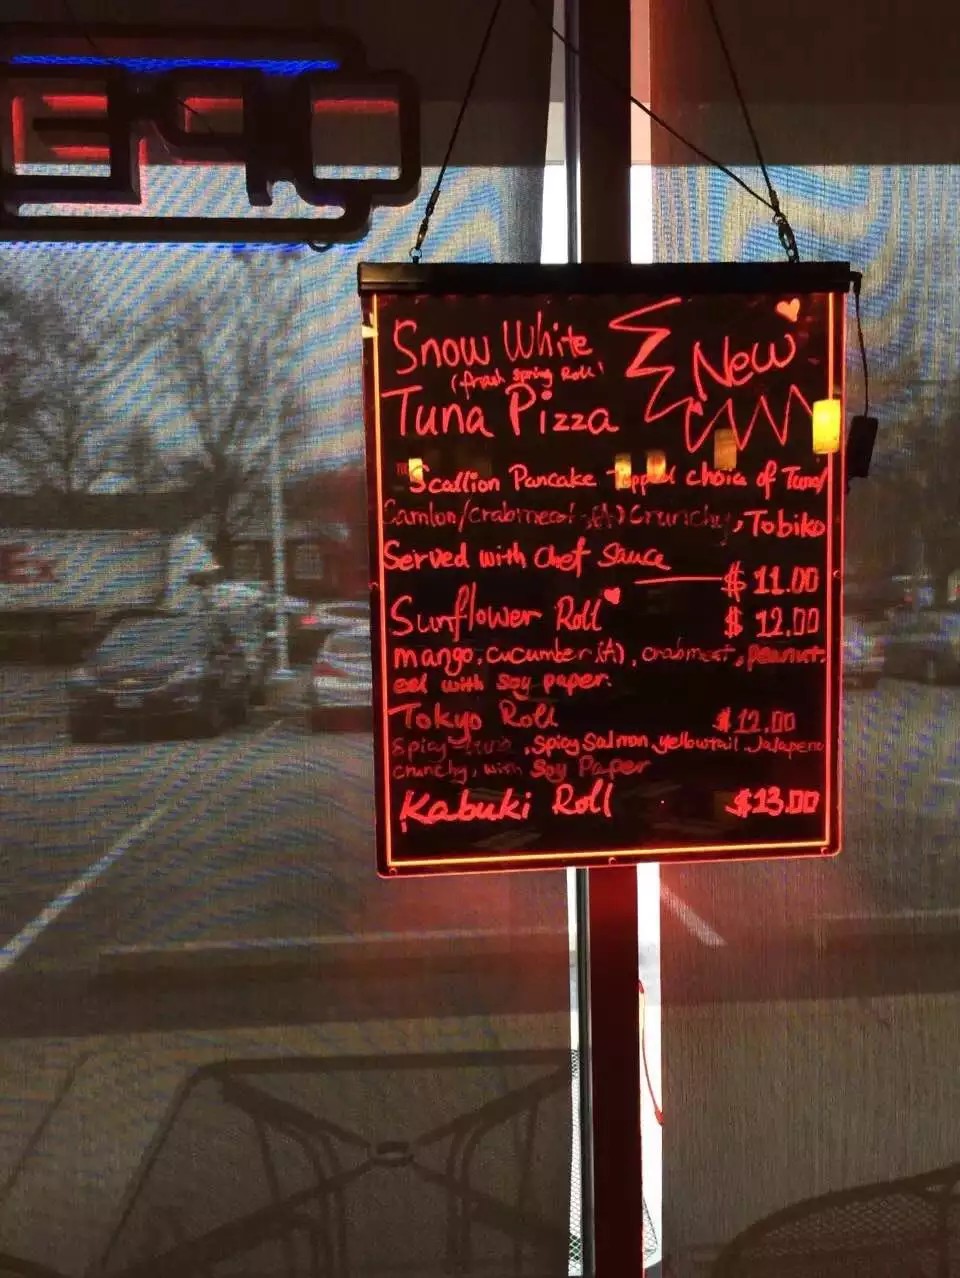 OPEN
Snow White
(fresh spring Roll)
New
Tuna Pizza
Scallion Pancake Topped choice of Tuna/
/crabmeat, (A) Crunchy, Tobiko
Served with Chef Sauce
$ 11.00
Sunflower Roll $ 12.00
mango, cucumber, (A), crabmeat, peanut.
eel with Soy paper.
Tokyo Roll $12.00
Spicy Tuna, Spicy Salmon, yellowtail, Jalapeno
crunchy, with Soy Paper
Kabuki Roll $13.00